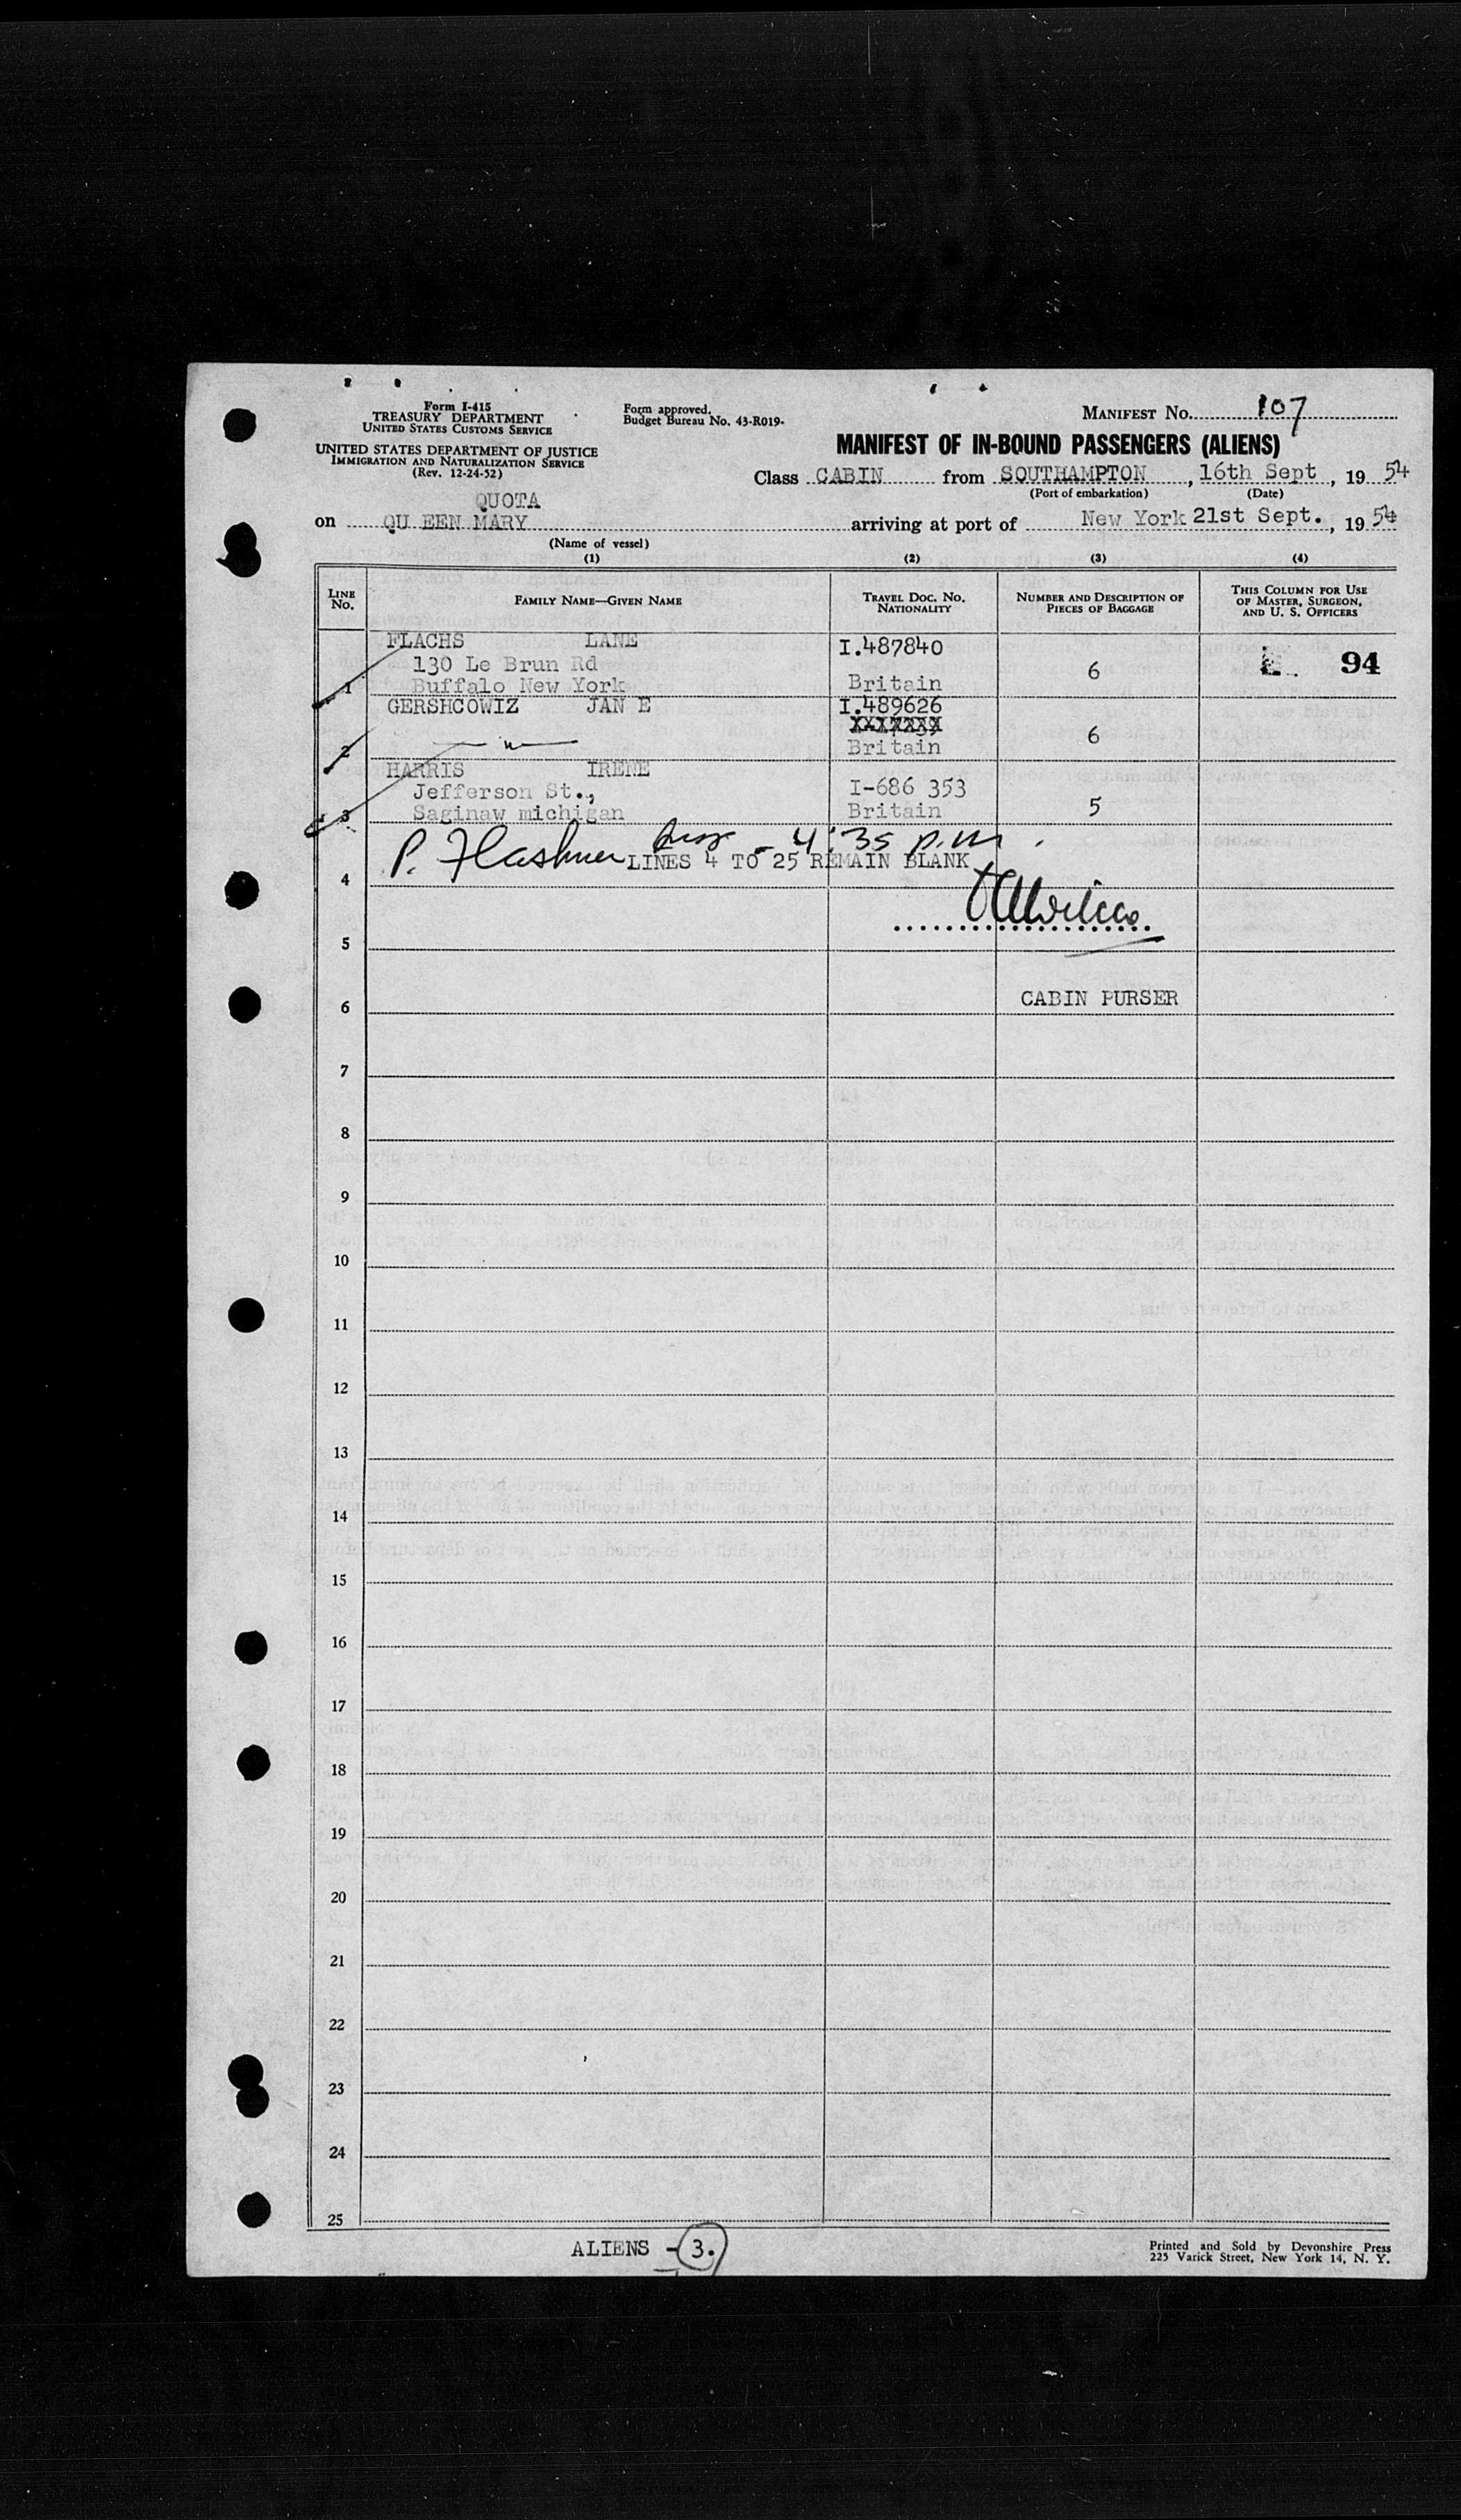 Form I-415
TREASURY DEPARTMENT
UNITED STATES CUSTOMS SERVICE
UNITED STATES DEPARTMENT OF JUSTICE
IMMIGRATION AND NATURALIZATION SERVICE
(Rev. 12-24-52)
Form approved.
Budget Bureau No. 43-R019-
MANIFEST NO. 107
MANIFEST OF IN-BOUND PASSENGERS (ALIENS)
Class CABIN from SOUTHAMPTON, 16th Sept, 19 54
(Port of embarkation) (Date)
QUOTA
on QU EEN MARY arriving at port of New York 21st Sept., 19 54
(Name of vessel)
(1) (2) (3) (4)
LINE NO. FAMILY NAME—GIVEN NAME TRAVEL DOC. NO. NATIONALITY NUMBER AND DESCRIPTION OF PIECES OF BAGGAGE THIS COLUMN FOR USE OF MASTER, SURGEON, AND U. S. OFFICERS
FLACHS LANE I.487840
130 Le Brun Rd 6 94
1 Buffalo New York Britain
GERSHCOWIZ JAN E I.489626
2 — " — Britain 6
HARRIS IRENE
Jefferson St., I-686 353
3 Saginaw michigan Britain 5
P. Flashner - 4:35 p.m.
4 LINES 4 TO 25 REMAIN BLANK
5
6 CABIN PURSER
7
8
9
10
11
12
13
14
15
16
17
18
19
20
21
22
23
24
25
ALIENS - 3.
Printed and Sold by Devonshire Press
225 Varick Street, New York 14, N. Y.